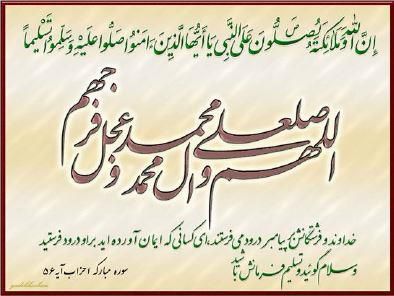 إِنَّ اللهَ وَمَلَائِكَتَهُ يُصَلُّونَ عَلَى النَّبِيِّ يَا أَيُّهَا الَّذِينَ ءَامَنُوا صَلُّوا عَلَيْهِ وَسَلِّمُوا تَسْلِيماً
اللهم صل علی محمد وآل محمد وعجل فرجهم
خداوند و فرشتگانش بر پیامبر درود می فرستند، ای کسانی که ایمان آورده اید بر او درود فرستید
وسلام گوئید و تسلیم فرمانش باشید
سوره مبارکه احزاب آیه ۵۶